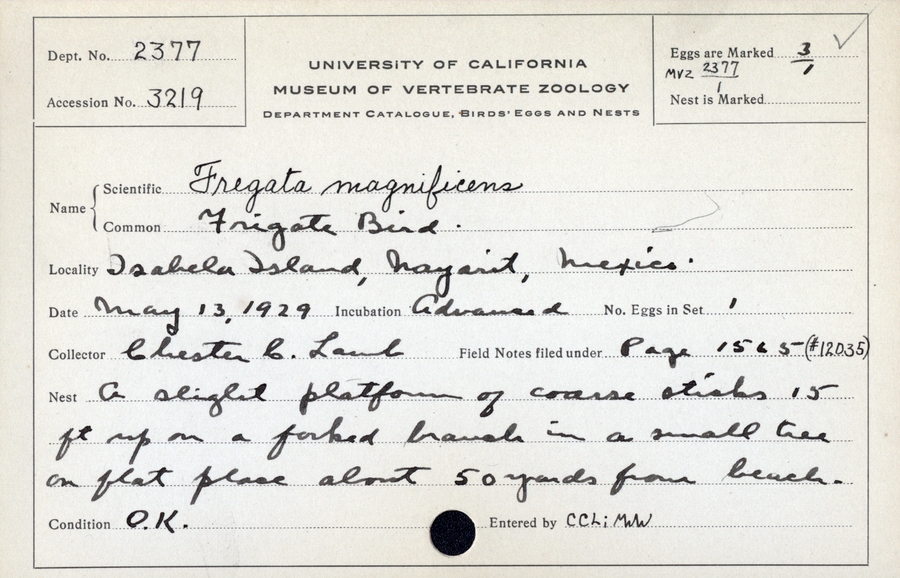 Dept. No. 2377
Accession No. 3219
UNIVERSITY OF CALIFORNIA
MUSEUM OF VERTEBRATE ZOOLOGY
DEPARTMENT CATALOGUE, BIRDS' EGGS AND NESTS
Eggs are Marked 3/1
MVZ 2377/1
Nest is Marked
Name
Scientific Fregata magnificens
Common Frigate Bird.
Locality Isabela Island, Nayarit, Mexico.
Date May 13, 1929 Incubation Advanced No. Eggs in Set 1
Collector Chester C. Lamb Field Notes filed under Page 1565 (#12035)
Nest A slight platform of coarse sticks 15
ft up on a forked branch in a small tree
on flat place about 50 yards from beach.
Condition O.K. Entered by CCL; MW